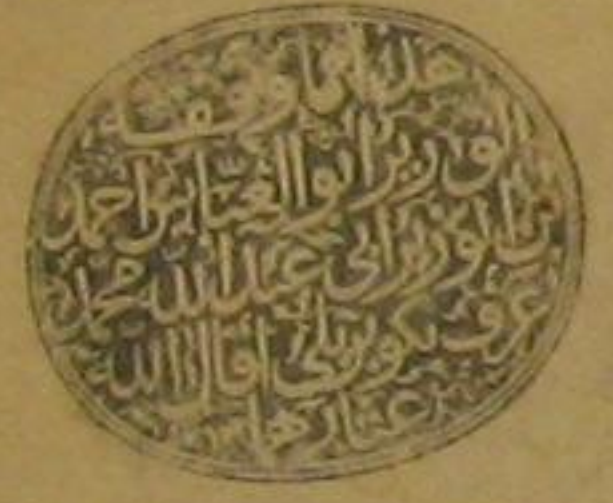 هذا ما وقفه
الوزير ابو العباس احمد
بن الوزير ابي عبد الله محمد
عرف بكوپريلي اقال الله
عثارهما